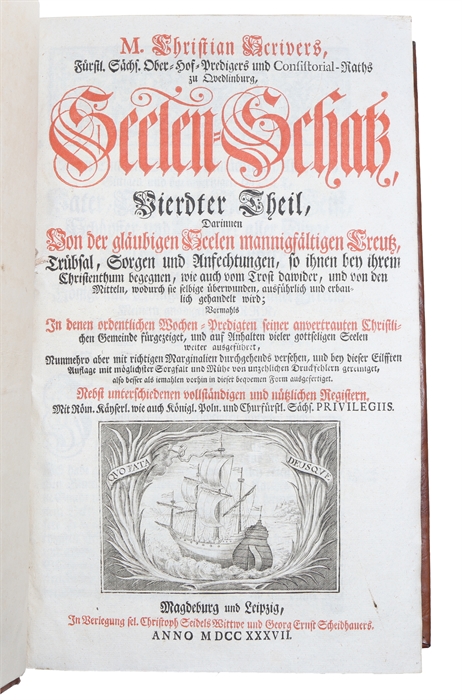 M. Christian Scrivers,
Fürstl. Sächs. Ober-Hof-Predigers und Consistorial-Raths
zu Qvedlinburg,
Seelen-Schatz,
Vierdter Theil,
Darinnen
Von der gläubigen Seelen mannigfältigen Creutz,
Trübsal, Sorgen und Anfechtungen, so ihnen bey ihrem
Christenthum begegnen, wie auch vom Trost dawider, und von den
Mitteln, wodurch sie selbige überwunden, ausführlich und erbau-
lich gehandelt wird;
Vormahls
In denen ordentlichen Wochen-Predigten seiner anvertrauten Christli-
chen Gemeinde fürgezeiget, und auf Anhalten vieler gottseligen Seelen
weiter ausgeführet,
Nunmehro aber mit richtigen Marginalien durchgehends versehen, und bey dieser Eilfften
Auflage mit möglichster Sorgfalt und Mühe von unzehlichen Druckfehlern gereiniget,
also besser als iemahlen vorhin in dieser beqvemen Form ausgefertiget.
Nebst unterschiedenen vollständigen und nützlichen Registern.
Mit Röm. Käyserl. wie auch Königl. Poln. und Churfürstl. Sächs. PRIVILEGIIS.
QUO FATA DEUSQVE
Magdeburg und Leipzig,
In Verlegung sel. Christoph Seidels Wittwe und Georg Ernst Scheidhauers.
ANNO MDCCXXXVII.